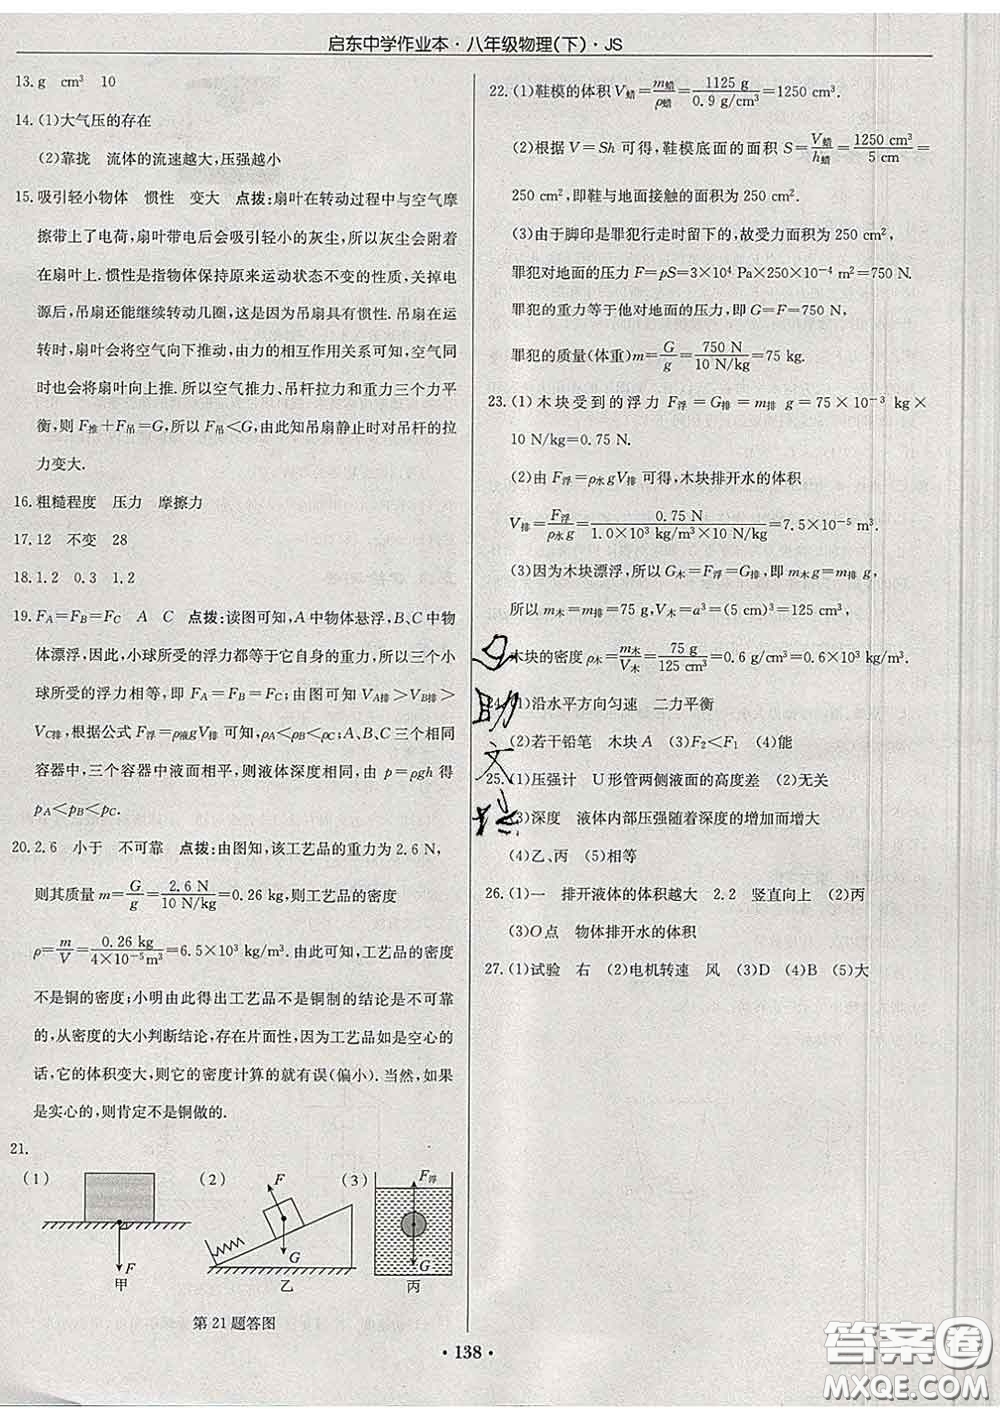 启东中学作业本·八年级物理(下)·JS
13. g　cm³　10
14. (1)大气压的存在
(2)靠拢　流体的流速越大,压强越小
15. 吸引轻小物体　惯性　变大　点拨:扇叶在转动过程中与空气摩
擦带上了电荷,扇叶带电后会吸引轻小的灰尘,所以灰尘会附着
在扇叶上. 惯性是指物体保持原来运动状态不变的性质,关掉电
源后,吊扇还能继续转动几圈,这是因为吊扇具有惯性. 吊扇在运
转时,扇叶会将空气向下推动,由力的相互作用关系可知,空气同
时也会将扇叶向上推. 所以空气推力、吊杆拉力和重力三个力平
衡,则 F推+F吊=G,所以 F吊<G,由此知吊扇静止时对吊杆的拉
力变大.
16. 粗糙程度　压力　摩擦力
17. 12　不变　28
18. 1.2　0.3　1.2
19. F_A=F_B=F_C　A　C　点拨:读图可知,A中物体悬浮,B、C中物
体漂浮,因此,小球所受的浮力都等于它自身的重力,所以三个小
球所受的浮力相等,即 F_A=F_B=F_C;由图可知 V_A排>V_B排>
V_C排,根据公式 F浮=ρ液gV排 可知,ρ_A<ρ_B<ρ_C;A、B、C三个相同
容器中,三个容器中液面相平,则液体深度相同,由 p=ρgh 得
p_A<p_B<p_C.
20. 2.6　小于　不可靠　点拨:由图知,该工艺品的重力为 2.6 N,
则其质量 m=G/g=2.6 N/10 N/kg=0.26 kg,则工艺品的密度
ρ=m/V=0.26 kg/4×10⁻⁵m³=6.5×10³ kg/m³. 由此可知,工艺品的密度
不是铜的密度;小明由此得出工艺品不是铜制的结论是不可靠
的,从密度的大小判断结论,存在片面性,因为工艺品如是空心的
话,它的体积变大,则它的密度计算的就有误(偏小). 当然,如果
是实心的,则肯定不是铜做的.
21.
(1)　F　甲
(2)　F　G　乙
(3)　F浮　G　丙
第 21 题答图
22. (1)鞋模的体积 V蜡=m蜡/ρ蜡=1125 g/0.9 g/cm³=1250 cm³.
(2)根据 V=Sh 可得,鞋模底面的面积 S=V蜡/h蜡=1250 cm³/5 cm=
250 cm²,即鞋与地面接触的面积为 250 cm².
(3)由于脚印是罪犯行走时留下的,故受力面积为 250 cm²,
罪犯对地面的压力 F=pS=3×10⁴ Pa×250×10⁻⁴ m²=750 N.
罪犯的重力等于他对地面的压力,即 G=F=750 N,
罪犯的质量(体重)m=G/g=750 N/10 N/kg=75 kg.
23. (1)木块受到的浮力 F浮=G排=m排 g=75×10⁻³ kg×
10 N/kg=0.75 N.
(2)由 F浮=ρ水gV排 可得,木块排开水的体积
V排=F浮/ρ水g=0.75 N/1.0×10³ kg/m³×10 N/kg=7.5×10⁻⁵ m³.
(3)因为木块漂浮,所以 G木=F浮=G排,即 m木g=m排 g,
所以 m木=m排=75 g,V木=a³=(5 cm)³=125 cm³,
木块的密度 ρ木=m木/V木=75 g/125 cm³=0.6 g/cm³=0.6×10³ kg/m³.
24. (1)沿水平方向匀速　二力平衡
(2)若干铅笔　木块 A　(3)F₂<F₁　(4)能
25. (1)压强计　U形管两侧液面的高度差　(2)无关
(3)深度　液体内部压强随着深度的增加而增大
(4)乙、丙　(5)相等
26. (1)一　排开液体的体积越大　2.2　竖直向上　(2)丙
(3)O点　物体排开水的体积
27. (1)试验　右　(2)电机转速　风　(3)D　(4)B　(5)大
·138·
答案圈
MXQE.COM